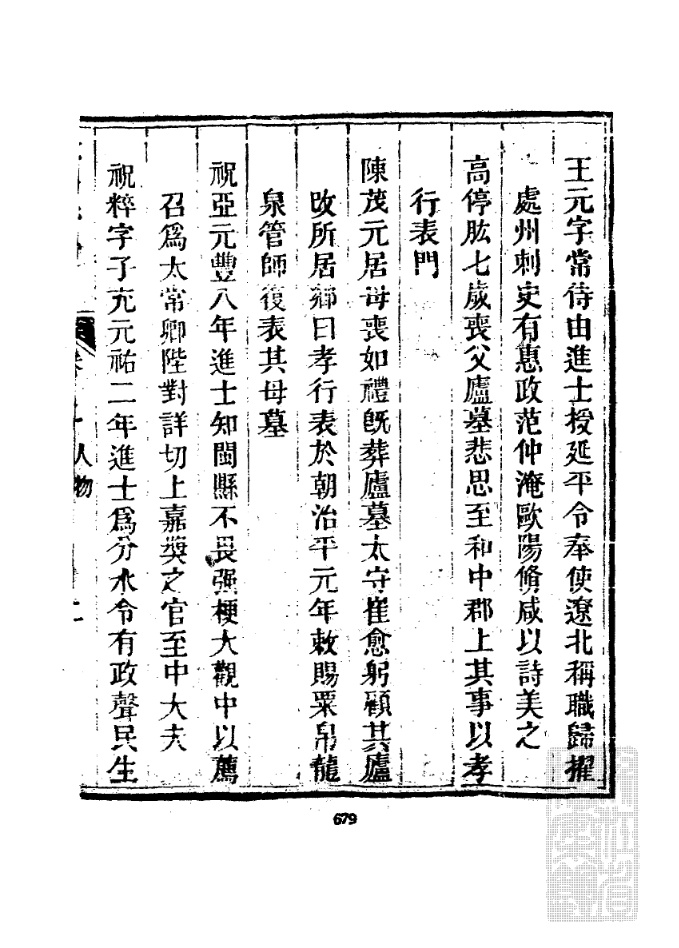 王元字常待由進士授延平令奉使遼北稱職歸擢
處州刺史有惠政范仲淹歐陽脩咸以詩美之
高停肱七歲喪父廬墓悲思至和中郡上其事以孝
行表門
陳茂元居母喪如禮旣葬廬墓太守崔愈躬顧其廬
改所居鄉曰孝行表於朝治平元年敕賜粟帛龍
泉管師復表其母墓
祝亞元豐八年進士知閩縣不畏强梗大觀中以薦
召爲太常卿陛對詳切上嘉奬之官至中大夫
祝粹字子充元祐二年進士爲分水令有政聲民生
人物
二
679